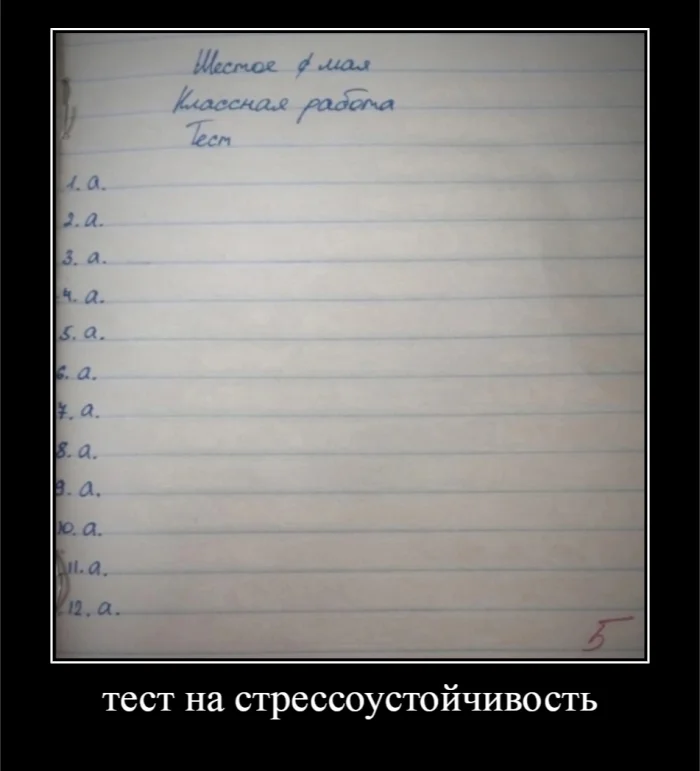 Шестое мая
Классная работа
Тест
1. а.
2. а.
3. а.
4. а.
5. а.
6. а.
7. а.
8. а.
9. а.
10. а.
11. а.
12. а.
5
тест на стрессоустойчивость